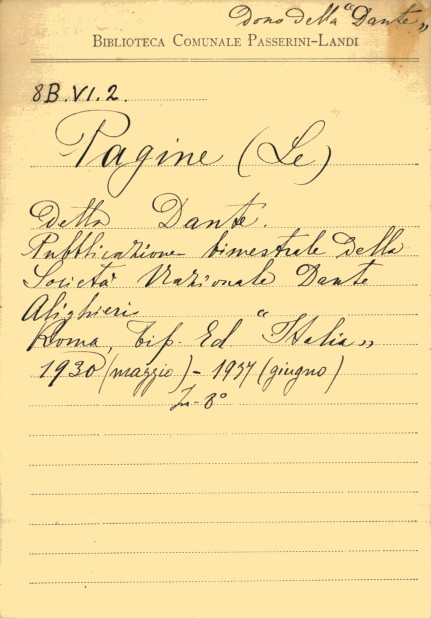 Dono della "Dante"
BIBLIOTECA COMUNALE PASSERINI-LANDI
8B.VI.2.
Pagine (Le)
della Dante.
Pubblicazione bimestrale della
Società Nazionale Dante
Alighieri
Roma, Tip. Ed "Italia"
1930 (maggio) - 1937 (giugno)
In-8°